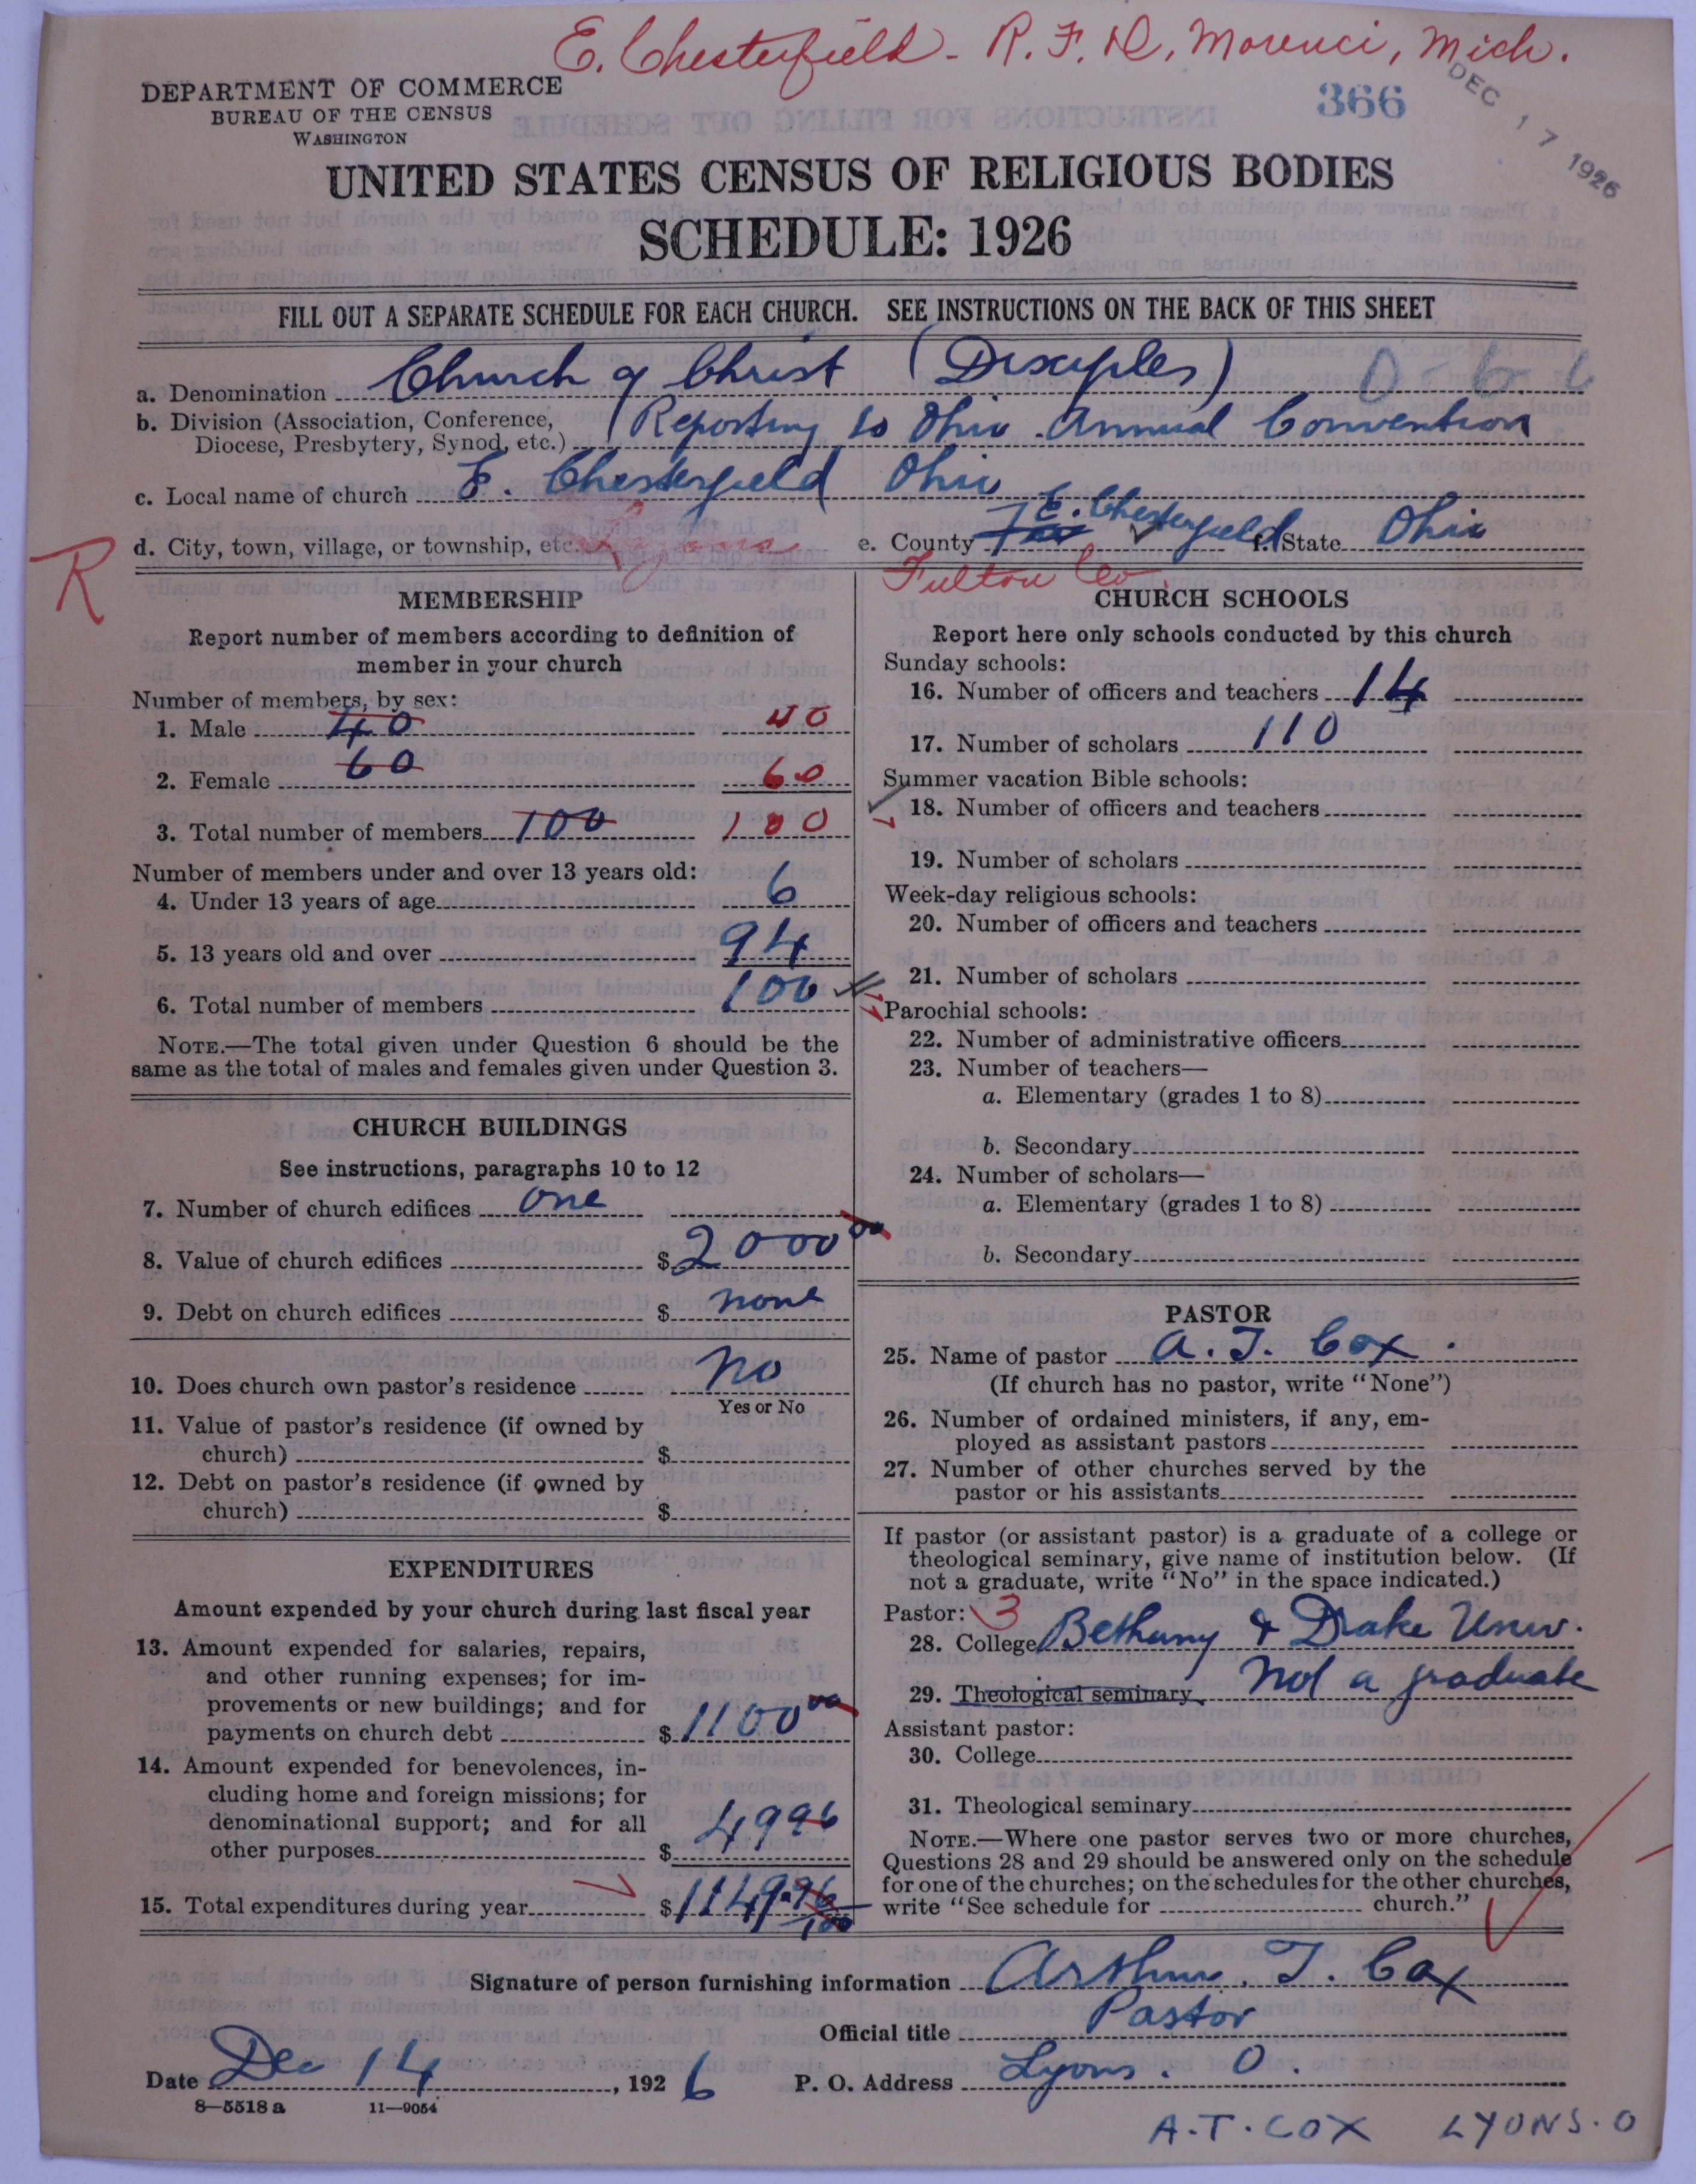 E. Chesterfield - R. F. D, Morenci, Mich.
DEPARTMENT OF COMMERCE
BUREAU OF THE CENSUS
WASHINGTON
366
DEC 17 1926
UNITED STATES CENSUS OF RELIGIOUS BODIES
SCHEDULE: 1926
FILL OUT A SEPARATE SCHEDULE FOR EACH CHURCH. SEE INSTRUCTIONS ON THE BACK OF THIS SHEET
a. Denomination Church of Christ (Disciples)
b. Division (Association, Conference,
Diocese, Presbytery, Synod, etc.) (Reporting to Ohio Annual Convention
c. Local name of church E. Chesterfield Ohio
R
d. City, town, village, or township, etc. e. County E. Chesterfield f. State Ohio
Fulton Co.
MEMBERSHIP
Report number of members according to definition of
member in your church
Number of members, by sex:
1. Male 40 40
2. Female 60 60
3. Total number of members 100 100
Number of members under and over 13 years old:
4. Under 13 years of age 6
5. 13 years old and over 94
6. Total number of members 100
NOTE.—The total given under Question 6 should be the
same as the total of males and females given under Question 3.
CHURCH BUILDINGS
See instructions, paragraphs 10 to 12
7. Number of church edifices one
8. Value of church edifices $ 2000 00
9. Debt on church edifices $ none
10. Does church own pastor's residence no
Yes or No
11. Value of pastor's residence (if owned by
church) $
12. Debt on pastor's residence (if owned by
church) $
EXPENDITURES
Amount expended by your church during last fiscal year
13. Amount expended for salaries, repairs,
and other running expenses; for im-
provements or new buildings; and for
payments on church debt $ 1100 00
14. Amount expended for benevolences, in-
cluding home and foreign missions; for
denominational support; and for all
other purposes $ 49 96
15. Total expenditures during year $ 1149.96/100
CHURCH SCHOOLS
Report here only schools conducted by this church
Sunday schools:
16. Number of officers and teachers 14
17. Number of scholars 110
Summer vacation Bible schools:
18. Number of officers and teachers
19. Number of scholars
Week-day religious schools:
20. Number of officers and teachers
21. Number of scholars
Parochial schools:
22. Number of administrative officers
23. Number of teachers—
a. Elementary (grades 1 to 8)
b. Secondary
24. Number of scholars—
a. Elementary (grades 1 to 8)
b. Secondary
PASTOR
25. Name of pastor A. T. Cox.
(If church has no pastor, write "None")
26. Number of ordained ministers, if any, em-
ployed as assistant pastors
27. Number of other churches served by the
pastor or his assistants
If pastor (or assistant pastor) is a graduate of a college or
theological seminary, give name of institution below. (If
not a graduate, write "No" in the space indicated.)
Pastor: 3
28. College Bethany & Drake Univ.
29. Theological seminary Not a graduate
Assistant pastor:
30. College
31. Theological seminary
NOTE.—Where one pastor serves two or more churches,
Questions 28 and 29 should be answered only on the schedule
for one of the churches; on the schedules for the other churches,
write "See schedule for church."
Signature of person furnishing information Arthur. T. Cox
Official title Pastor
Date Dec 14, 1926 P. O. Address Lyons. O.
8—5518a 11—9054
A.T. COX LYONS. O